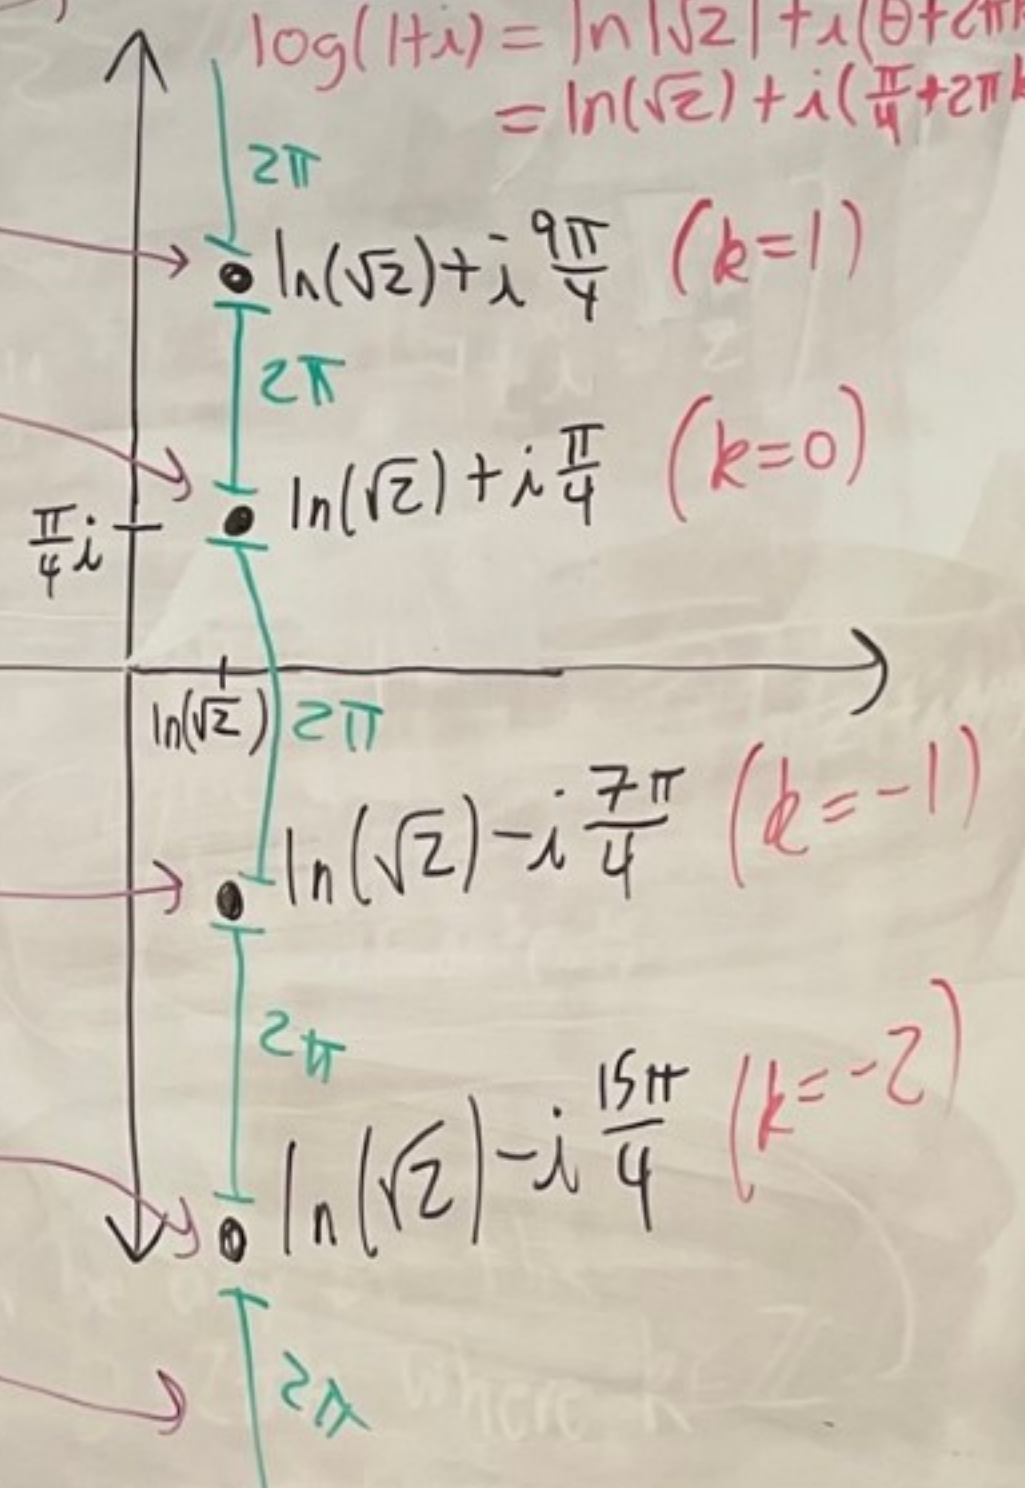 log(1+i) = ln|√2| + i(θ+2πk
= ln(√2) + i(π/4+2πk
2π
ln(√2)+i 9π/4 (k=1)
2π
ln(√2)+i π/4 (k=0)
π/4 i
ln(√2)
2π
ln(√2)-i 7π/4 (k=-1)
2π
ln(√2)-i 15π/4 (k=-2)
2π